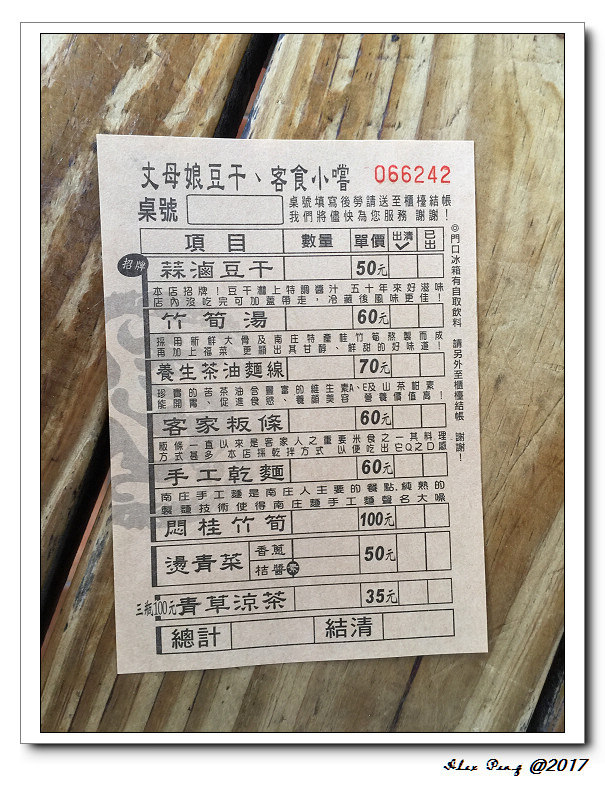 丈母娘豆干、客食小嚐 066242
桌號 桌號填寫後勞請送至櫃檯結帳
我們將儘快為您服務 謝謝!
項目 數量 單價 出清 已出
招牌 蒜滷豆干 50元
本店招牌!豆干灑上特調醬汁 五十年來好滋味
店內沒吃完可加蓋帶走,冷藏後風味更佳!
竹筍湯 60元
採用新鮮大骨及南庄特產桂竹筍熬製而成
再加上福菜 更顯出其甘醇、鮮甜的好味道!
養生茶油麵線 70元
珍貴的苦茶油含豐富的維生素A、E及山茶柑素
能開胃、促進食慾、養顏美容 營養價值高!
客家粄條 60元
粄條一直以來是客家人之重要米食之一其料理
方式甚多 本店採乾拌方式 以便吃出它Q之口感
手工乾麵 60元
南庄手工麵是南庄人主要的餐點,純熟的
製麵技術使得南庄麵手工麵聲名大噪
悶桂竹筍 100元
燙青菜 香蔥 50元
桔醬
三瓶100元 青草涼茶 35元
總計 結清
◎門口冰箱有自取飲料 請另外至櫃檯結帳 謝謝!
Alex Peng @2017